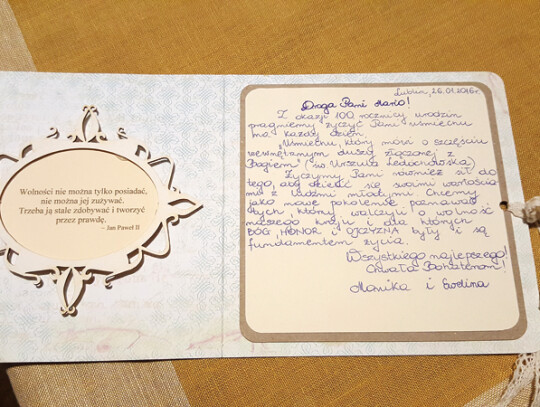 Wolności nie można tylko posiadać,
nie można jej zużywać.
Trzeba ją stale zdobywać i tworzyć
przez prawdę.
– Jan Paweł II
Lublin, 26.01.2016r.
Droga Pani Mario!
Z okazji 100 rocznicy urodzin
pragniemy życzyć Pani uśmiechu
na każdy dzień.
"Uśmiechu, który mówi o szczęściu
wewnętrznym duszy złączonej z
Bogiem" (św. Urszula Ledóchowska)
Życzymy Pani również sił do
tego, aby dzielić się swoimi wartościa-
mi z ludźmi młodymi. Chcemy
jako młode pokolenie poznawać
tych, którzy walczyli o wolność
naszego kraju i dla których
BÓG, HONOR i OJCZYZNA były i są
fundamentem życia.
Wszystkiego najlepszego!
Chwała Bohaterom!
Monika i Ewelina